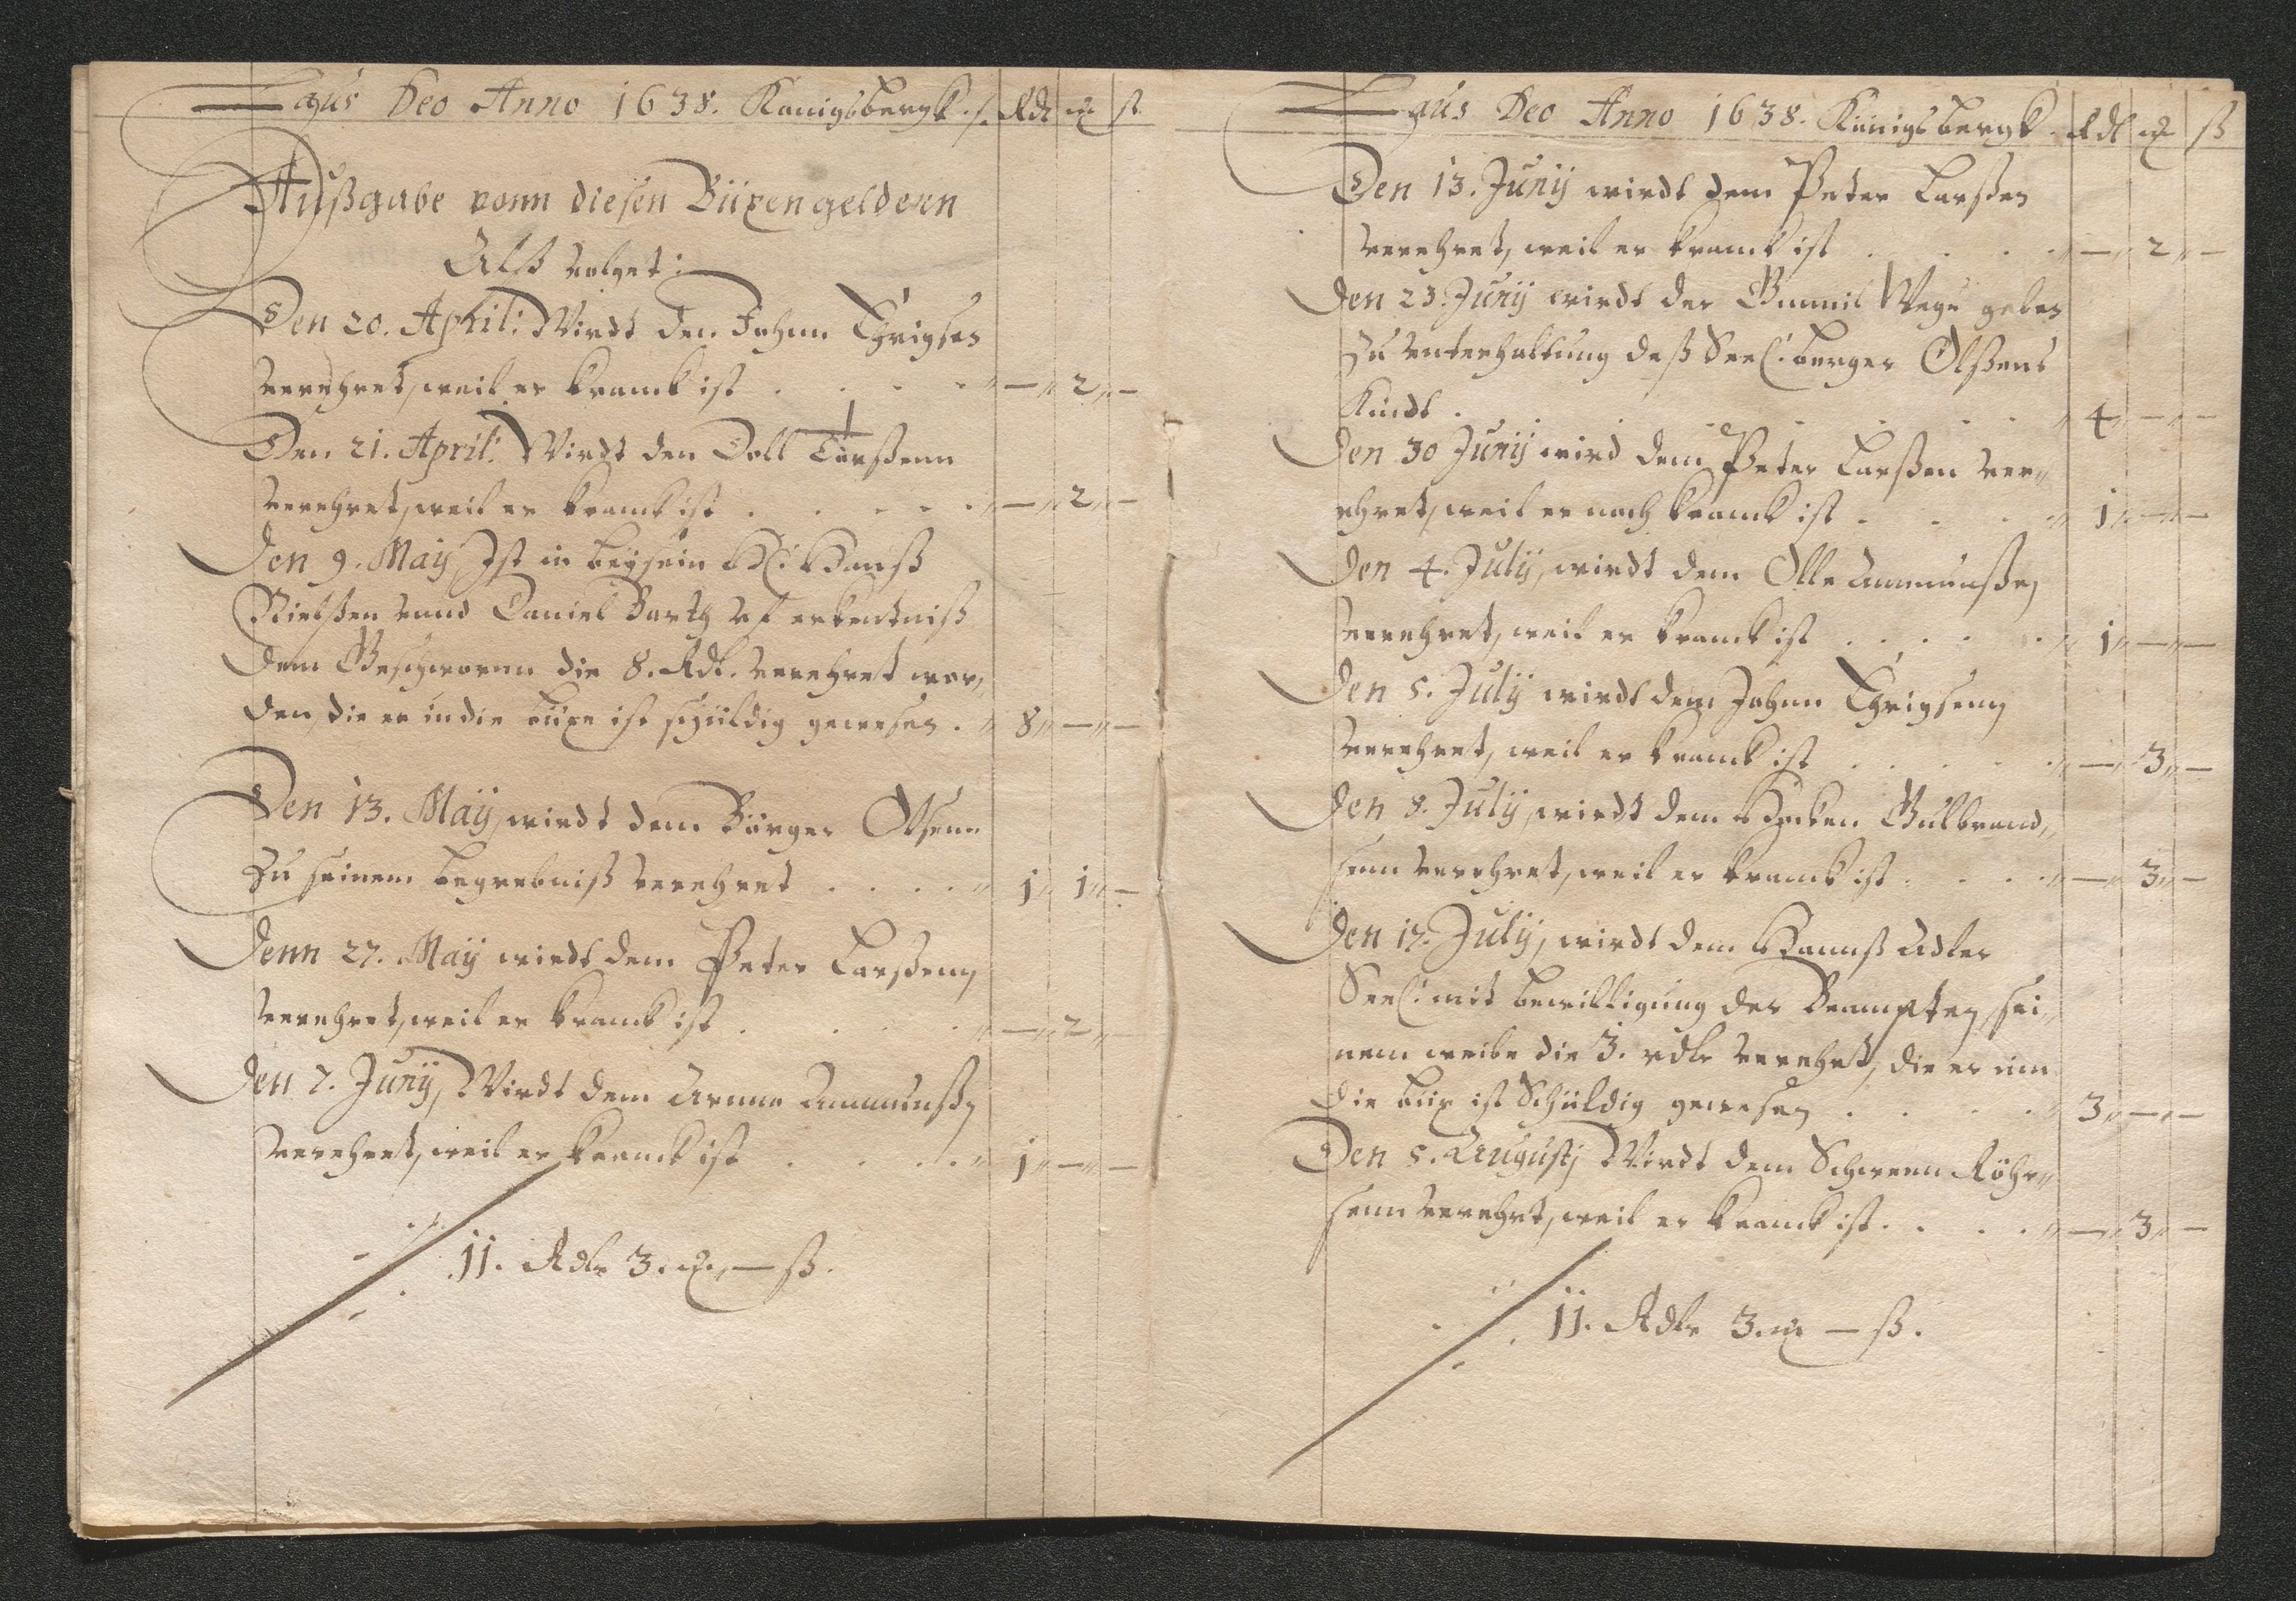 Laus Deo Anno 1638. Königsbergk ./. Rdl mk ß
Außgabe vonn diesen Büxengeldern
Alß volget:
Den 20. April: Wirdt den Johan Thrigsen
verehret, weil er kranck ist . . . . " — " 2 " —
Den 21. April: Wirdt den Doll Turßenn
verehret, weil er kranck ist . . . . . " — " 2 " —
Den 9. Maÿ Ist in beÿsein H: Hanß
Nielßen unnd Daniel Barth uf erkentniß
dem Geschwornn die 8. Rdl. verehret wor„
den, die er in die büxe ist schüldig gewesen . " 8 " — " —
Den 13. Maÿ, wirdt dem Börger Olsenn
zu seinem begrebniß verehret . . . . " 1 " 1 " —
Denn 27. Maÿ wirdt dem Peter Larßenn
verehret, weil er kranck ist . . . . " — " 2 "
Den 7. Junÿ, Wirdt dem Arnnn Ammunßen
verehret, weil er kranck ist . . . . " 1 " — " —
11. Rdlr 3. mk, — ß.
Laus Deo Anno 1638. Königsbergk . Rdl mk ß
Den 13. Junÿ wirdt dem Peter Larßen
verehret, weil er kranck ist . . . . " — " 2 " —
Den 23. Junÿ wirdt der Gunnil Wege geben
zu unterhaltung deß Seel: berger Olßens
Kindt . . . . . . . " 4 " — " —
Den 30 Junÿ wird dem Peter Larßen ver„
ehret, weil er noch kranck ist . . . " 1 " — " —
Den 4. Julÿ, wirdt dem Olle Ammunßen
verehret, weil er kranck ist . . . . . " 1 " — " —
Den 5. Julÿ wirdt dem Johan Thrigsenn
verehret, weil er kranck ist . . . . . " — " 3 " —
Den 8. Julÿ, wirdt dem Hocken Gulbrand„
senn verehret, weil er kranck ist . . . . " — " 3 " —
Den 17. Julÿ, wirdt dem Hannß Adler
Seel: mit bewilligung der Beampten, sei„
nem weibe die 3. rdlr verehret, die er inn
die büx ist Schüldig gewesen . . . . " 3 " — " —
Den 5. Augustj Wirdt dem Schwenn Röhr„
senn verehrt, weil er kranck ist . . . . " — " 3 " —
11. Rdlr 3. mk — ß.